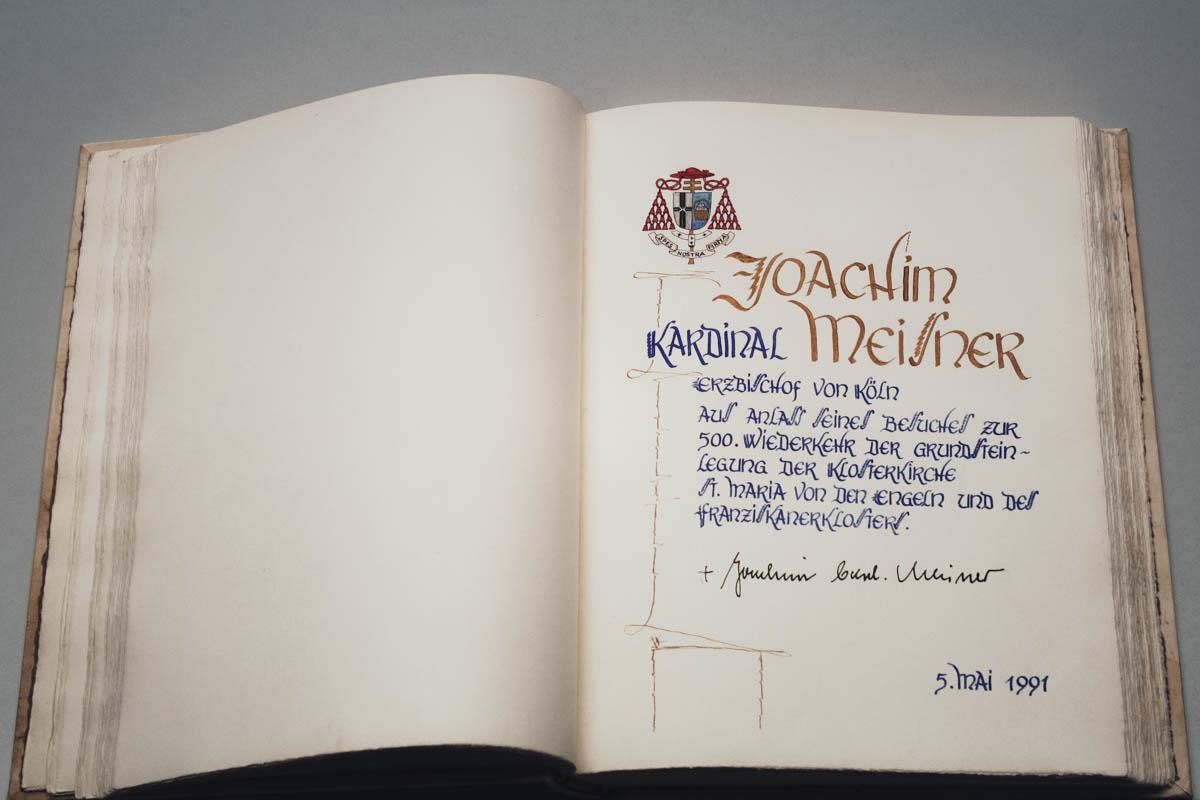 SPES NOSTRA FIRMA
Joachim
Kardinal Meisner
Erzbischof von Köln
aus Anlass seines Besuches zur
500. Wiederkehr der Grundstein-
legung der Klosterkirche
St. Maria von den Engeln und des
Franziskanerklosters.
+ Joachim Card. Meisner
5. Mai 1991